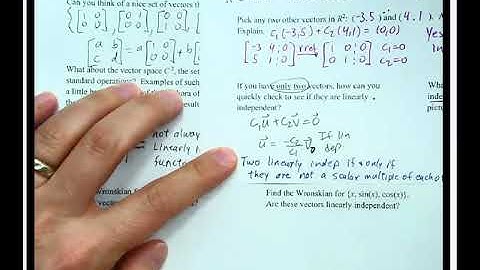 Can you think of a nice set of vectors th
{[1 0 0 0], [0 1 0 0], [0 0 1 0]
[a b c d] = a[1 0 0 0] + b[
What about the vector space C², the set
standard operations? Examples of such
a little b
not alway
Linearly
functo
Pick any two other vectors in R²: (-3,5) and (4,1).
Explain. C₁(-3,5) + C₂(4,1) = (0,0)
[-3 4 : 0
5 1 : 0] rref [1 0 : 0
0 1 : 0] C₁=0
C₂=0
Yes
If you have only two vectors, how can you
quickly check to see if they are linearly
independent?
C₁u⃗ + C₂v⃗ = 0⃗
u⃗ = -C₂/C₁ v⃗ If lin
dep.
Two linearly indep if & only if
they are not a scalar multiple of each o
Wronskian for
Find the Wronskian for {x, sin(x), cos(x)}.
Are these vectors linearly independent?
What
indep
pictu